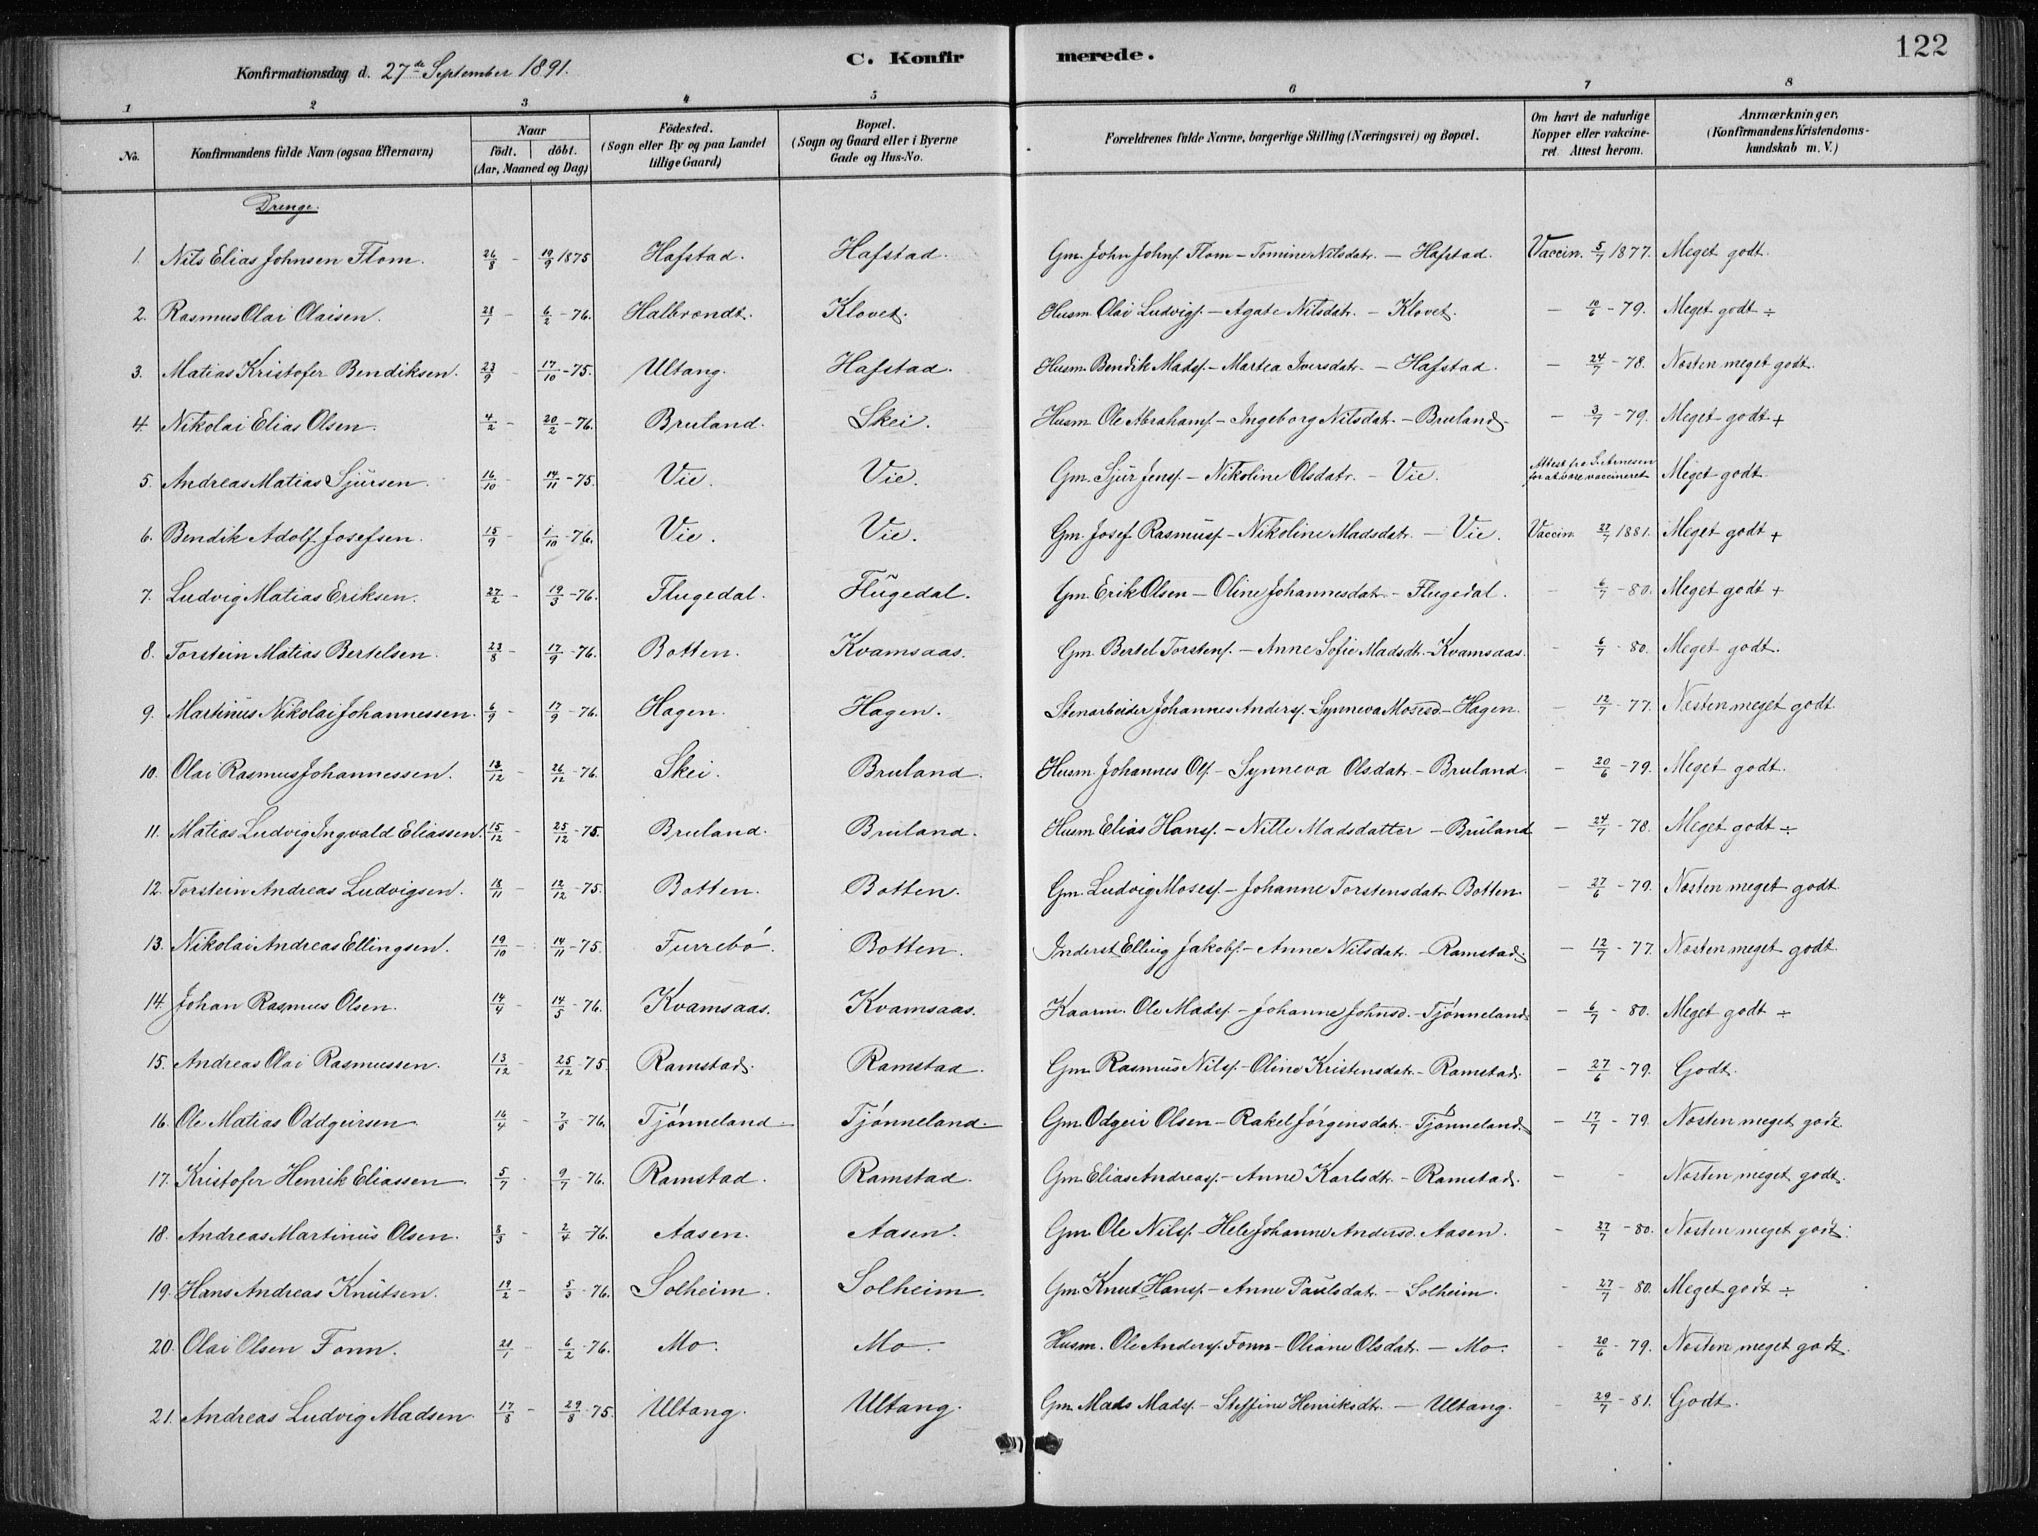 Konfirmationsdag d. 27de September 1891.
C. Konfirmerede.
122
1 2 3 4 5 6 7 8
No.
Konfirmandens fulde Navn (ogsaa Efternavn)
Naar født. døbt. (Aar, Maaned og Dag)
Födested. (Sogn eller By og paa Landet tillige Gaard)
Bopæl. (Sogn og Gaard eller i Byerne Gade og Hus-No.
Forældrenes fulde Navne, borgerlige Stilling (Næringsvei) og Bopæl.
Om havt de naturlige Kopper eller vakcineret. Attest herom.
Anmærkninger. (Konfirmandens Kristendomskundskab m. V.)
Drenge.
1. Nils Elias Johnsen Flom. 26/8 - 19/9 1875 Hafstad. Hafstad. Gm. John Johns. Flom - Tomine Nilsdatr. - Hafstad. Vaccin. 5/7 1877. Meget godt.
2. Rasmus Olai Olaisen. 28/1 - 6/2 - 76. Halbrendt. Klovet. Husm. Olai Ludvigs. - Agate Nilsdatr. - Klovet. - 10/6 - 79. Meget godt ÷
3. Matias Kristofer Bendiksen. 23/9 - 17/10 - 75. Ultang. Hafstad. Husm. Bendik Mads. - Martea Iversdatr. - Hafstad. - 24/7 - 78. Nesten meget godt.
4. Nikolai Elias Olsen. 4/2 - 20/2 - 76. Bruland. Skei. Husm. Ole Abrahams. - Ingeborg Nilsdatr. - Bruland. - 3/7 - 79. Meget godt +
5. Andreas Matias Sjursen. 16/10 - 14/11 - 75. Vie. Vie. Gm. Sjur Jens. - Nikoline Olsdatr. - Vie. Attest fra for at være vaccineret Meget godt
6. Bendik Adolf Josefsen. 15/9 - 1/10 - 76. Vie. Vie. Gm. Josef Rasmus. - Nikoline Madsdatr. - Vie. Vaccin. 27/7 1881. Meget godt +
7. Ludvig Matias Eriksen. 27/2 - 19/3 - 76. Flugedal. Flugedal. Gm. Erik Olsen - Oline Johannesdatr. - Flugedal. - 6/7 - 80. Meget godt +
8. Torstein Matias Bertelsen. 23/8 - 17/9 - 76. Botten. Kvamsaas. Gm. Bertel Torstens. - Anne Sofie Madsdt. - Kvamsaas. - 6/7 - 80. Meget godt.
9. Martinus Nikolai Johannessen. 6/9 - 17/9 - 76. Hagen. Hagen. Stenarbeider Johannes Anders. - Synneva Mosesd. - Hagen. - 12/7 - 77. Nesten meget godt
10. Olai Rasmus Johannessen. 12/12 - 26/12 - 76. Skei. Bruland. Husm. Johannes Ols. - Synneva Olsdatr. - Bruland. - 20/6 - 79. Meget godt.
11. Matias Ludvig Ingvald Eliassen. 15/12 - 25/12 - 75. Bruland. Bruland. Husm. Elias Hans. - Nille Madsdatter - Bruland - 24/7 - 78. Meget godt ÷
12. Torstein Andreas Ludvigsen. 18/11 - 12/12 - 75. Botten. Botten. Gm. Ludvig Moses. - Johanne Torstensdatr. Botten. - 27/6 - 79. Nesten meget godt
13. Nikolai Andreas Ellingsen. 19/10 - 14/11 - 75. Furrebø. Botten. Inderst Elling Jakobs. - Anne Nilsdatr. - Ramstad - 12/7 - 77. Nesten meget godt.
14. Johan Rasmus Olsen. 14/4 - 14/5 - 76. Kvamsaas. Kvamsaas. Kaarm. Ole Mads. - Johanne Johnsd. - Tjønneland. - 6/7 - 80. Meget godt ÷
15. Andreas Olai Rasmussen. 13/12 - 25/12 - 75. Ramstad. Ramstad. Gm. Rasmus Nils. - Oline Kristensdatr. - Ramstad. - 27/6 - 79. Godt.
16. Ole Matias Oddgeirsen. 16/4 - 7/5 - 76. Tjønneland. Tjønneland. Gm. Odgeir Olsen - Rakel Jørgensdatr. - Tjønneland. - 17/7 - 79. Nesten meget godt.
17. Kristofer Henrik Eliassen. 5/7 - 9/7 - 76. Ramstad. Ramstad. Gm. Elias Andreas. - Anne Karlsdt. - Ramstad. - - Nesten meget godt.
18. Andreas Martinus Olsen. 8/3 - 2/4 - 76. Aasen. Aasen. Gm. Ole Nils. - Hele Johanne Andersd. Aasen. - 27/7 - 80. Nesten meget godt.
19. Hans Andreas Knutsen. 19/2 - 5/3 - 76. Solheim. Solheim. Gm. Knut Hans. - Anne Paulsdatr. - Solheim. - 27/7 - 80. Meget godt ÷
20. Olai Olsen Fonn. 21/1 - 6/2 - 76. Mo. Mo. Husm. Ole Anders. Fonn - Oliane Olsdatr. - Mo. - 20/6 - 79. Nesten meget godt.
21. Andreas Ludvig Madsen. 17/8 - 29/8 - 75. Ultang. Ultang. Gm. Mads Mads. - Steffine Henriksdt. - Ultang. - 29/7 - 81. Godt.